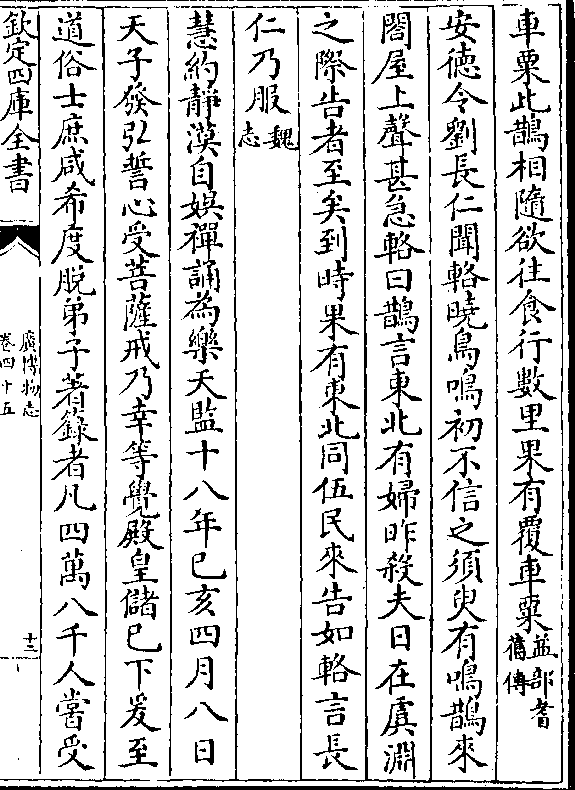 車粟此鵲相隨欲往食行數里果有覆車粟益部耆舊傳
安德令劉長仁聞輅曉鳥鳴初不信之須臾有鳴鵲來
閤屋上聲甚急輅曰鵲言東北有婦昨殺夫日在虞淵
之際告者至矣到時果有東北同伍民來告如輅言長
仁乃服魏志
慧約靜漠自娛禪誦為樂天監十八年己亥四月八日
天子發弘誓心受菩薩戒乃幸等覺殿皇儲已下爰至
道俗士庶咸希度脫弟子著籙者凡四萬八千人嘗受
欽定四庫全書
廣博物志
卷四十五
十三